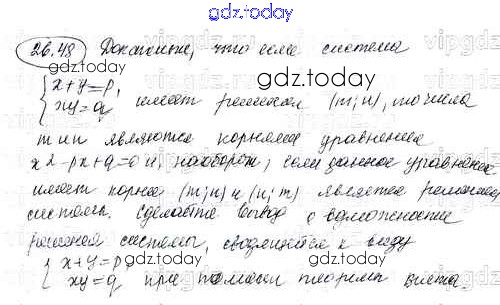 gdz.today
26.48 Докажите, что если система
gdz.today
{ x+y=p,
xy=q имеет решения (m;n), то числа
m и n являются корнями уравнения
x2-px+q=0 и, наоборот, если данное уравнение
имеет корни (m;n) и (n;m) является решением
системы. Сделайте вывод о возможности
решения системы, сводящейся к виду
{ x+y=p
xy=q при помощи теоремы Виета.
gdz.today
gdz.today
gdz.today
gdz.today
gdz.today